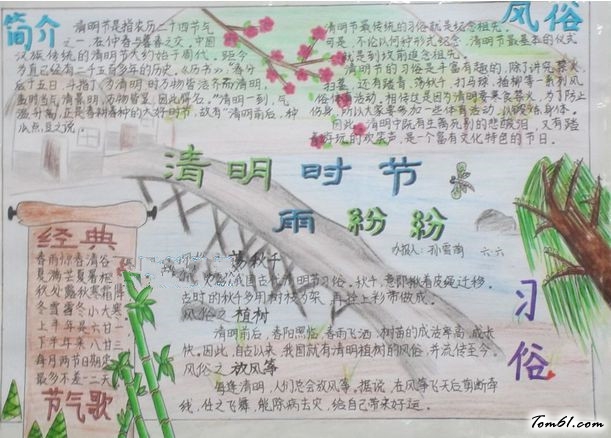 简介
清明节是指农历二十四节气
之一，在仲春与暮春之交，中国
汉族传统的清明节大约始于周代，距今
已有二千五百多年的历史。《历书》："春分
后十五日，斗指丁，为清明，时万物皆洁齐而清明，
盖时当气清景明，万物皆显，因此得名。""清明一到，气
温升高，正是春耕春种的大好时节，故有"清明前后，种
瓜点豆之说。
风俗
清明节最传统的习俗就是纪念祖先。
可是，不论以何种形式纪念，清明节最基本的仪式
就是到坟前追念祖先。
清明节的习俗是丰富有趣的，除了讲究禁火、
扫墓，还有踏青、荡秋千、打马球、插柳等一系列风
俗体育活动。相传这是因为清明要寒食禁火，为了防止
所以大家来参加一些体育活动，以锻炼身体。
因此，清明中既有生离死别的悲酸泪，又有踏
青游玩的欢笑声，是一个富有文化特色的节日。
清明时节
雨纷纷
办报人：孙雪南 六六
经典
春雨惊春清谷
夏满芒夏暑相
秋处露秋寒霜降
冬雪雪冬小大寒
上半年是六廿一
下半年来八廿三
每月两节日期定
最多不差一二天
节气歌
荡秋千
我国古代清明节习俗。秋千，意即揪着皮绳迁移。
古时的秋千多用树枝为架，再拴上彩带做成。
风俗之植树
清明前后，春阳照临，春雨飞洒，树苗的成活率高，成长
快。因此，自古以来，我国就有清明植树的风俗，并流传至今。
风俗之放风筝
每逢清明，人们总会放风筝。据说，在风筝飞天后剪断牵
线，任之飞舞，能除病去灾，给自己带来好运。
习俗
Tom61.com